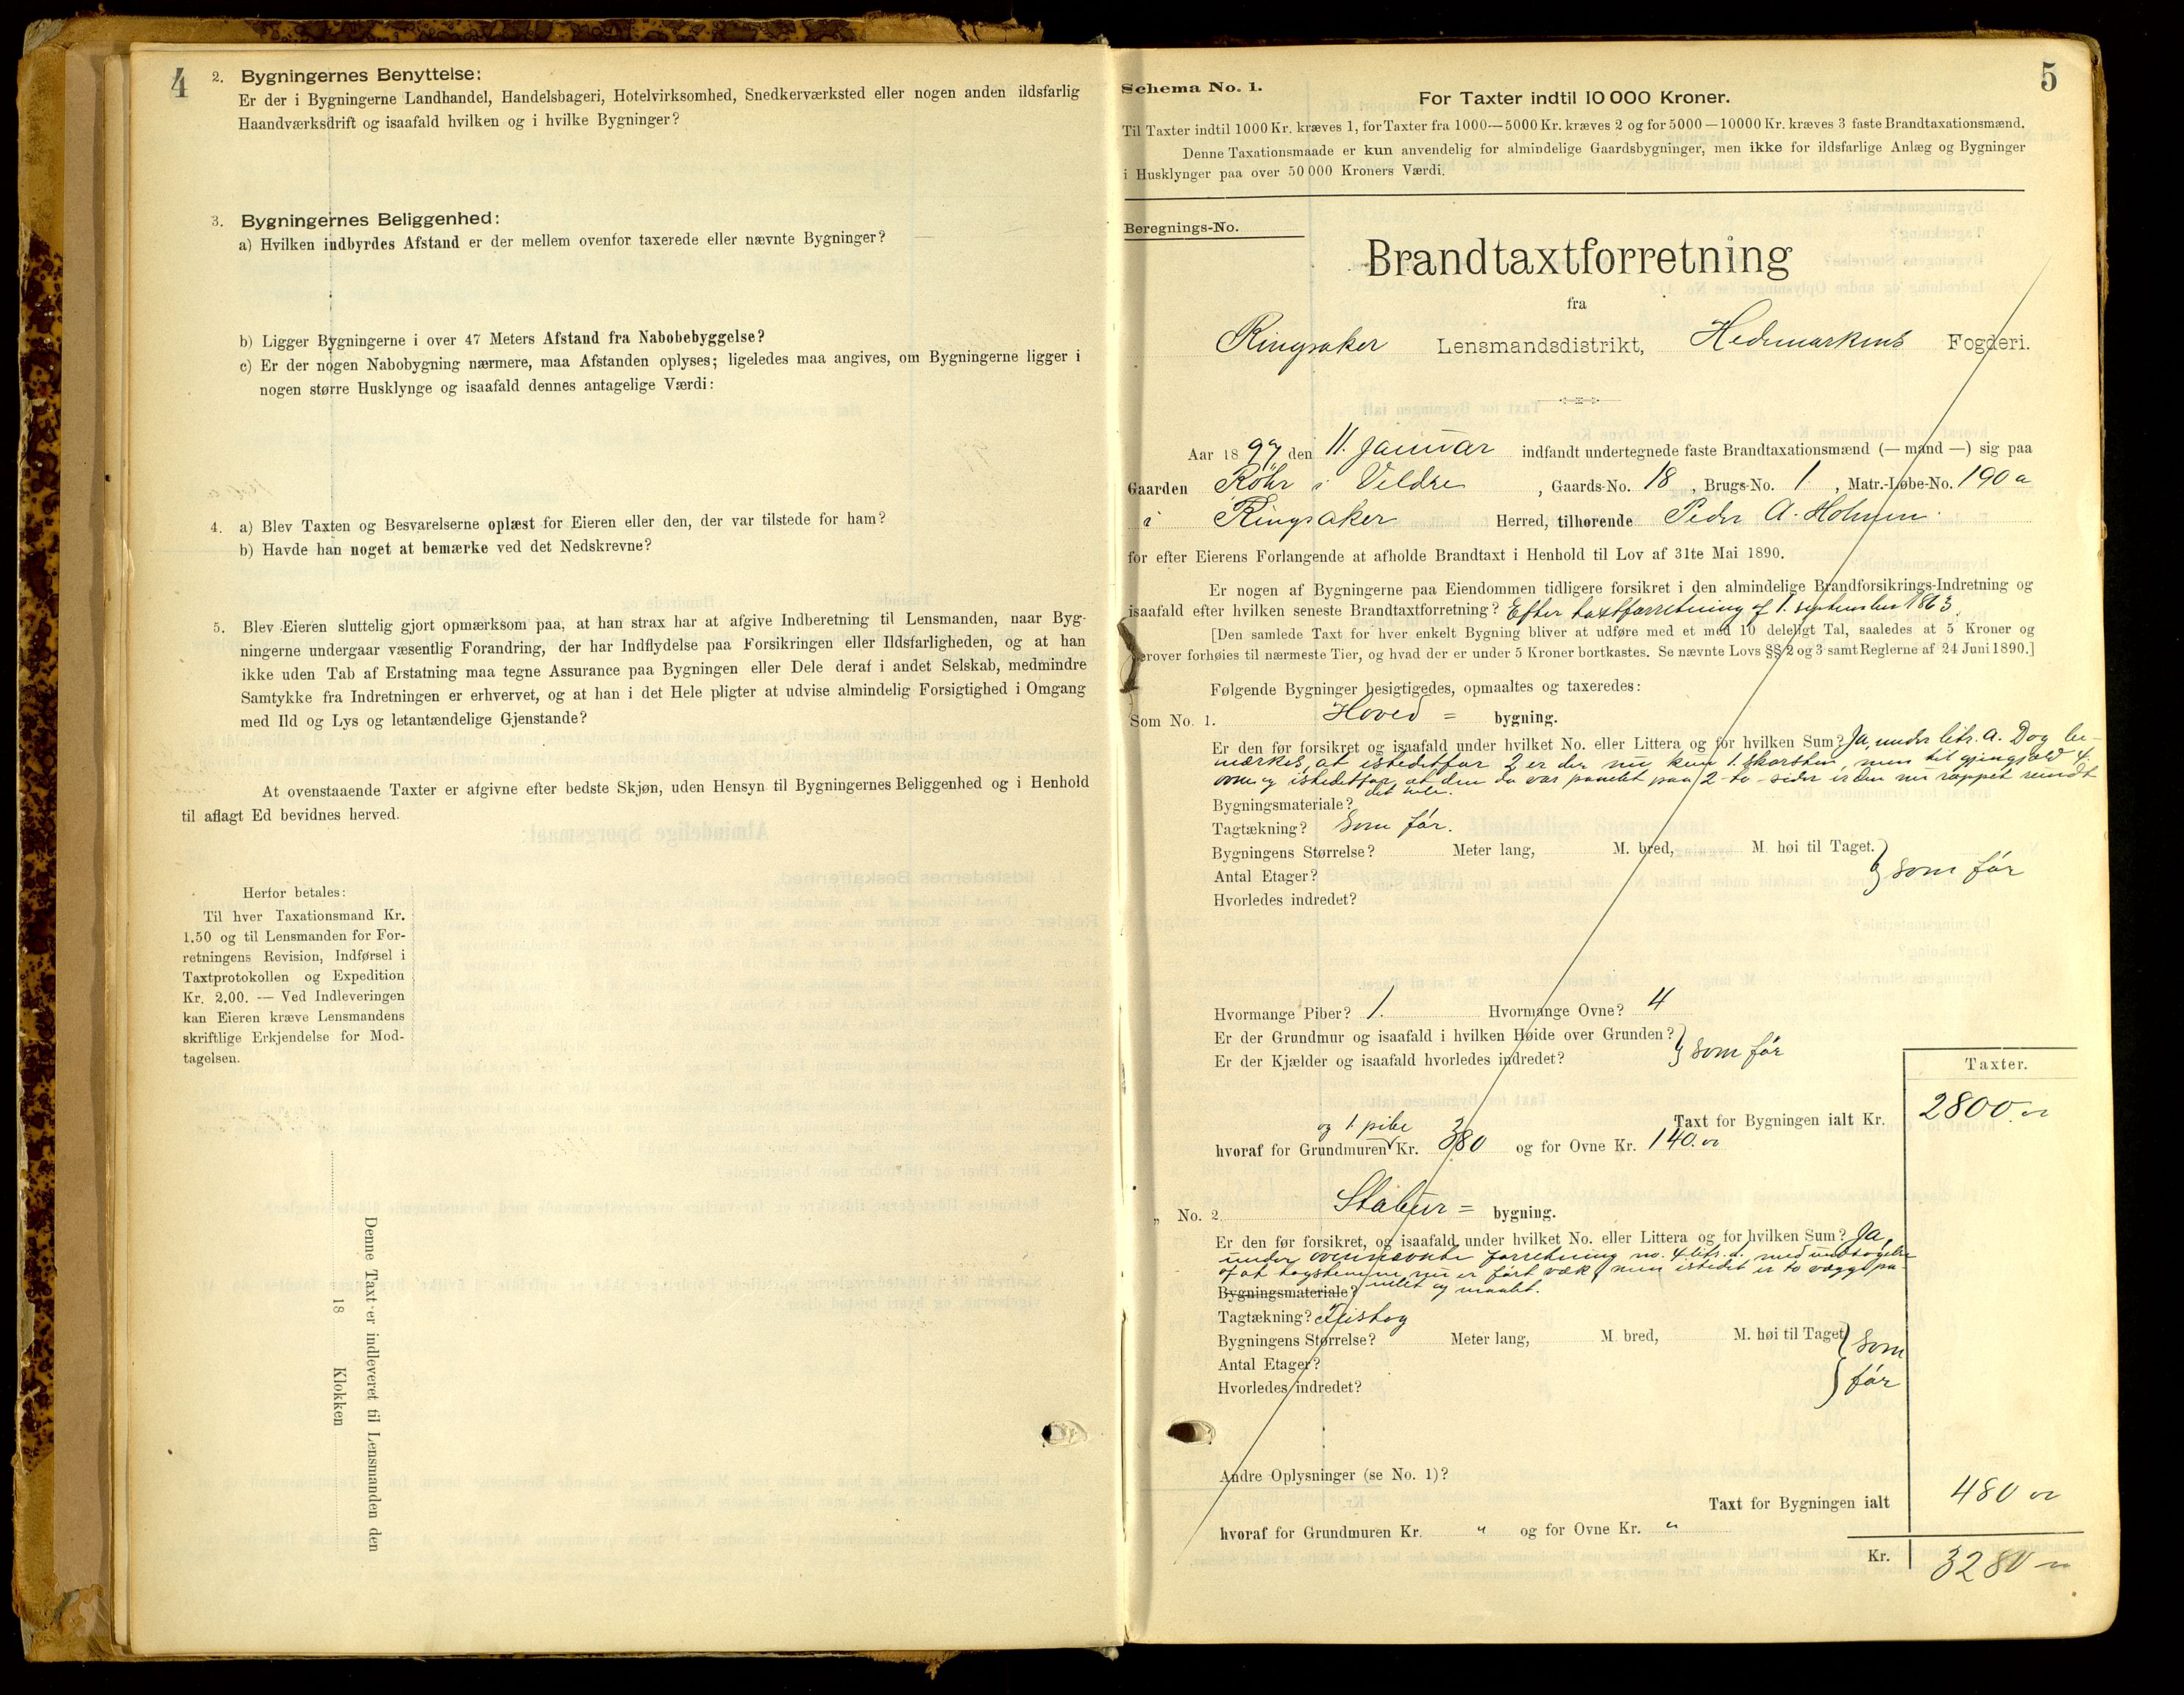 4
2. Bygningernes Benyttelse:
Er der i Bygningerne Landhandel, Handelsbageri, Hotelvirksomhed, Snedkerværksted eller nogen anden ildsfarlig
Haandværksdrift og isaafald hvilken og i hvilke Bygninger?
3. Bygningernes Beliggenhed:
a) Hvilken indbyrdes Afstand er der mellem ovenfor taxerede eller nævnte Bygninger?
b) Ligger Bygningerne i over 47 Meters Afstand fra Nabobebyggelse?
c) Er der nogen Nabobygning nærmere, maa Afstanden oplyses; ligeledes maa angives, om Bygningerne ligger i
nogen større Husklynge og isaafald dennes antagelige Værdi:
4. a) Blev Taxten og Besvarelserne oplæst for Eieren eller den, der var tilstede for ham?
b) Havde han noget at bemærke ved det Nedskrevne?
5. Blev Eieren sluttelig gjort opmærksom paa, at han strax har at afgive Indberetning til Lensmanden, naar Byg-
ningerne undergaar væsentlig Forandring, der har Indflydelse paa Forsikringen eller Ildsfarligheden, og at han
ikke uden Tab af Erstatning maa tegne Assurance paa Bygningen eller Dele deraf i andet Selskab, medmindre
Samtykke fra Indretningen er erhvervet, og at han i det Hele pligter at udvise almindelig Forsigtighed i Omgang
med Ild og Lys og letantændelige Gjenstande?
At ovenstaaende Taxter er afgivne efter bedste Skjøn, uden Hensyn til Bygningernes Beliggenhed og i Henhold
til aflagt Ed bevidnes herved.
Herfor betales:
Til hver Taxationsmand Kr.
1.50 og til Lensmanden for For-
retningens Revision, Indførsel i
Taxtprotokollen og Expedition
Kr. 2.00. — Ved Indleveringen
kan Eieren kræve Lensmandens
skriftlige Erkjendelse for Mod-
tagelsen.
Denne Taxt er indleveret til Lensmanden den
18 Klokken
5
Schema No. 1.
For Taxter indtil 10 000 Kroner.
Til Taxter indtil 1000 Kr. kræves 1, for Taxter fra 1000—5000 Kr. kræves 2 og for 5000—10000 Kr. kræves 3 faste Brandtaxationsmænd.
Denne Taxationsmaade er kun anvendelig for almindelige Gaardsbygninger, men ikke for ildsfarlige Anlæg og Bygninger
i Husklynger paa over 50 000 Kroners Værdi.
Beregnings-No.
Brandtaxtforretning
fra
Ringsaker Lensmandsdistrikt, Hedemarkens Fogderi.
Aar 1897 den 11. Januar indfandt undertegnede faste Brandtaxationsmænd (— mand —) sig paa
Gaarden Røhr i Veldre, Gaards-No. 18, Brugs-No. 1., Matr.-Løbe-No. 190a
i Ringsaker Herred, tilhørende Peder A. Holmen.
for efter Eierens Forlangende at afholde Brandtaxt i Henhold til Lov af 31te Mai 1890.
Er nogen af Bygningerne paa Eiendommen tidligere forsikret i den almindelige Brandforsikrings-Indretning og
isaafald efter hvilken seneste Brandtaxtforretning? Efter taxtforretning af 1. september 1863.
[Den samlede Taxt for hver enkelt Bygning bliver at udføre med et med 10 deleligt Tal, saaledes at 5 Kroner og
derover forhøies til nærmeste Tier, og hvad der er under 5 Kroner bortkastes. Se nævnte Lovs §§ 2 og 3 samt Reglerne af 24 Juni 1890.]
Følgende Bygninger besigtigedes, opmaaltes og taxeredes:
Som No. 1. Hoved = bygning.
Er den før forsikret og isaafald under hvilket No. eller Littera og for hvilken Sum? Ja, under litr. a. Dog be-
mærkes, at istedetfor 2 er der nu kun 1 skorsten, men til gjengjæld 4
ovne og istedetfor at den da var panelet paa 2 to sider er den nu rappet rundt
det hele.
Bygningsmateriale?
Tagtækning? Som før.
Bygningens Størrelse? Meter lang, M. bred, M. høi til Taget.
Antal Etager? som før
Hvorledes indredet?
Hvormange Piber? 1. Hvormange Ovne? 4
Er der Grundmur og isaafald i hvilken Høide over Grunden?
Er der Kjælder og isaafald hvorledes indredet? som før
Taxter.
Taxt for Bygningen ialt Kr. 2800.
og 1 pibe
hvoraf for Grundmuren Kr. 380 og for Ovne Kr. 140.
„ No. 2. Stabur = bygning.
Er den før forsikret, og isaafald under hvilket No. eller Littera og for hvilken Sum? Ja,
under ovennævnte forretning no. 4 litr. d. med undtagelse
af at tagstenene nu er ført væk, men istedet er to vægge pa-
nelet og maalet.
Bygningsmateriale?
Tagtækning? Flistag
Bygningens Størrelse? Meter lang, M. bred, M. høi til Taget
Antal Etager? som
Hvorledes indredet? før
Andre Oplysninger (se No. 1)?
Taxt for Bygningen ialt 480
hvoraf for Grundmuren Kr. " og for Ovne Kr. "
Kr. 3280